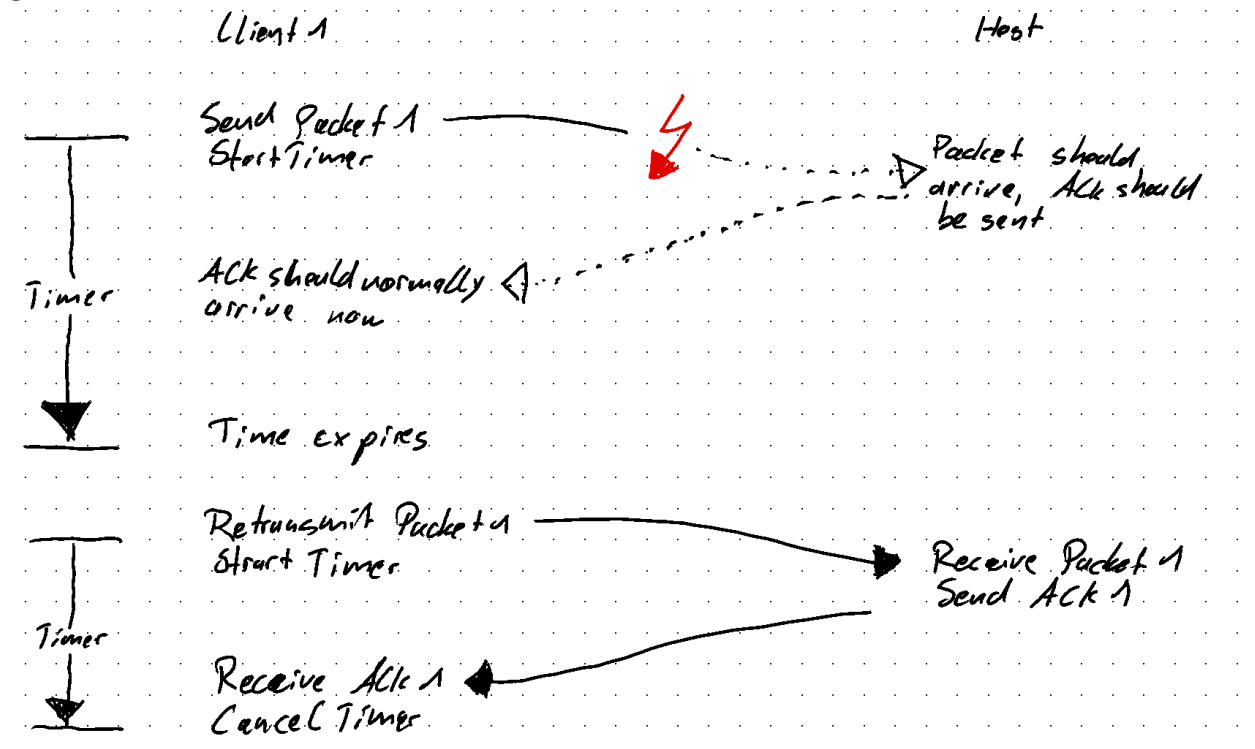 Client 1
Host
Send Packet 1
Start Timer
Packet should
arrive, ACK should
be sent
ACK should normally
arrive now
Timer
Time expires
Retransmit Packet 1
Strart Timer
Receive Packet 1
Send ACK 1
Timer
Receive ACK 1
Cancel Timer